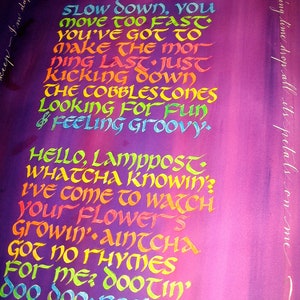 SLOW DOWN, YOU
MOVE TOO FAST.
YOU'VE GOT TO
MAKE THE MOR
NING LAST. JUST
KICKING DOWN
THE COBBLESTONES
LOOKING FOR FUN
& FEELING GROOVY.
HELLO, LAMPPOST.
WHATCHA KNOWIN'?
I'VE COME TO WATCH
YOUR FLOWERS
GROWIN'. AINTCHA
GOT NO RHYMES
FOR ME? DOOTIN'
DOO DOO
time drop all its petals on me